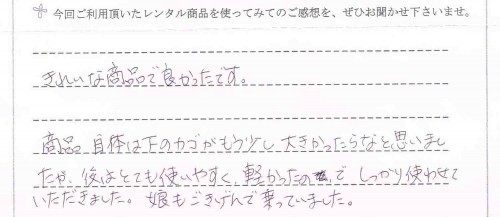 今回ご利用頂いたレンタル商品を使ってみてのご感想を、ぜひお聞かせ下さいませ。
きれいな商品で良かったです。
商品自体は下のカゴがもう少し大きかったらなと思いまし
たが、後はとても使いやすく、軽かったので しっかり使わせて
いただきました。娘もごきげんで乗っていました。